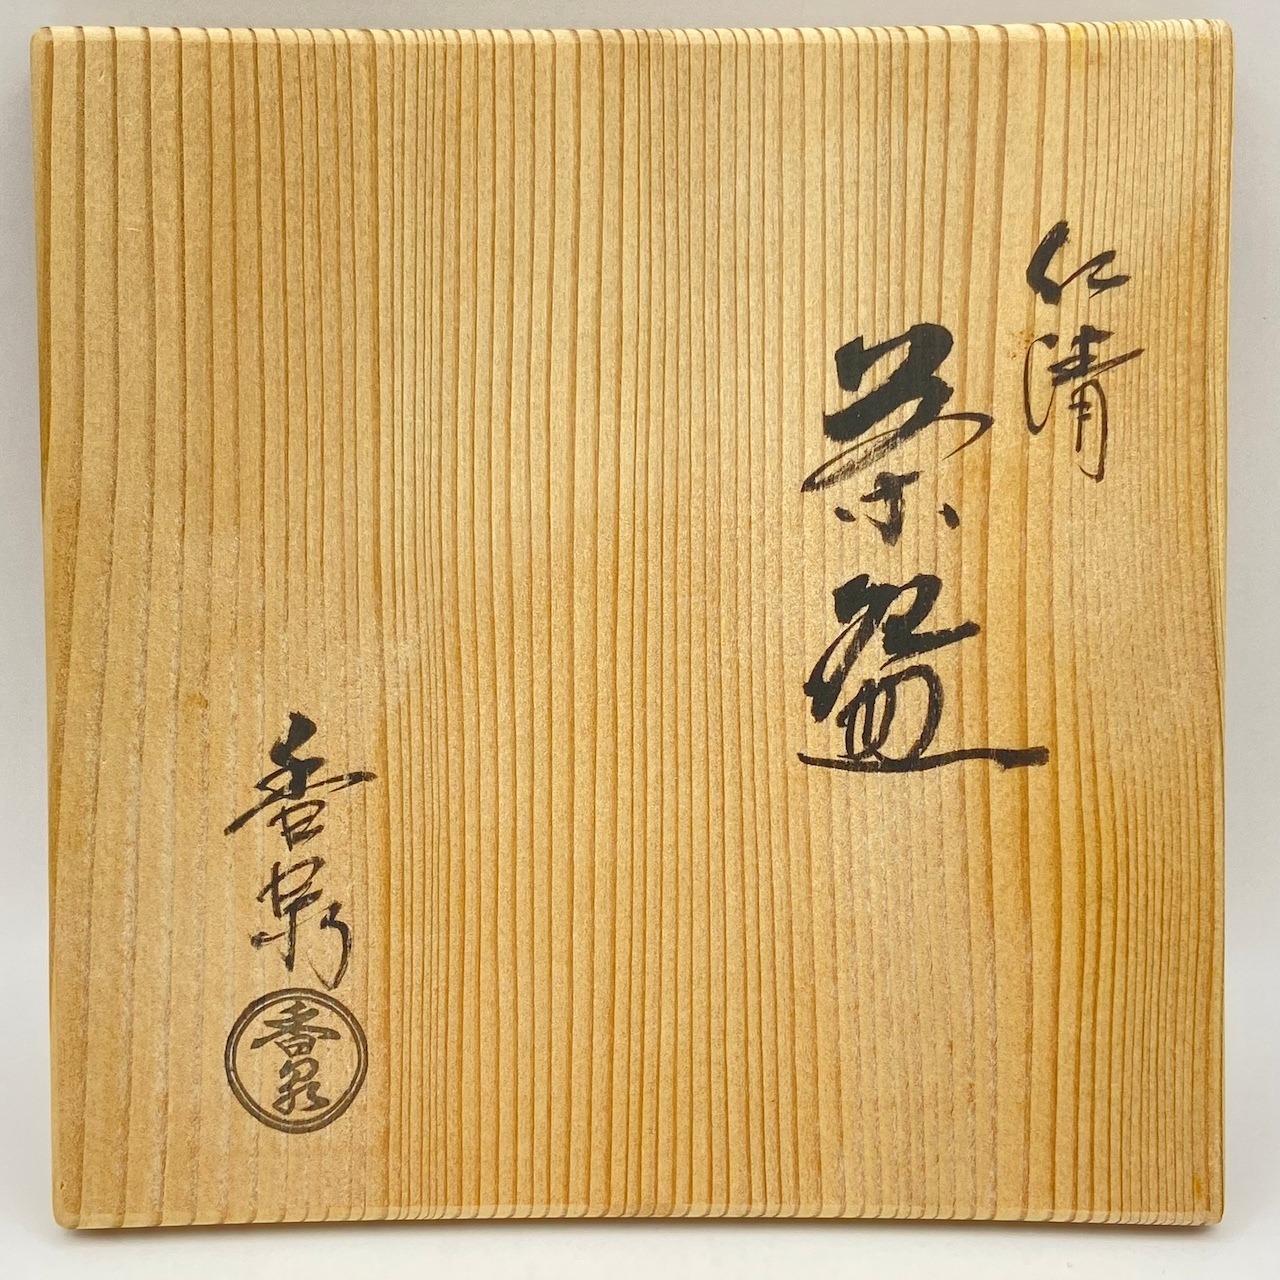 仁清
茶碗
香泉
香泉